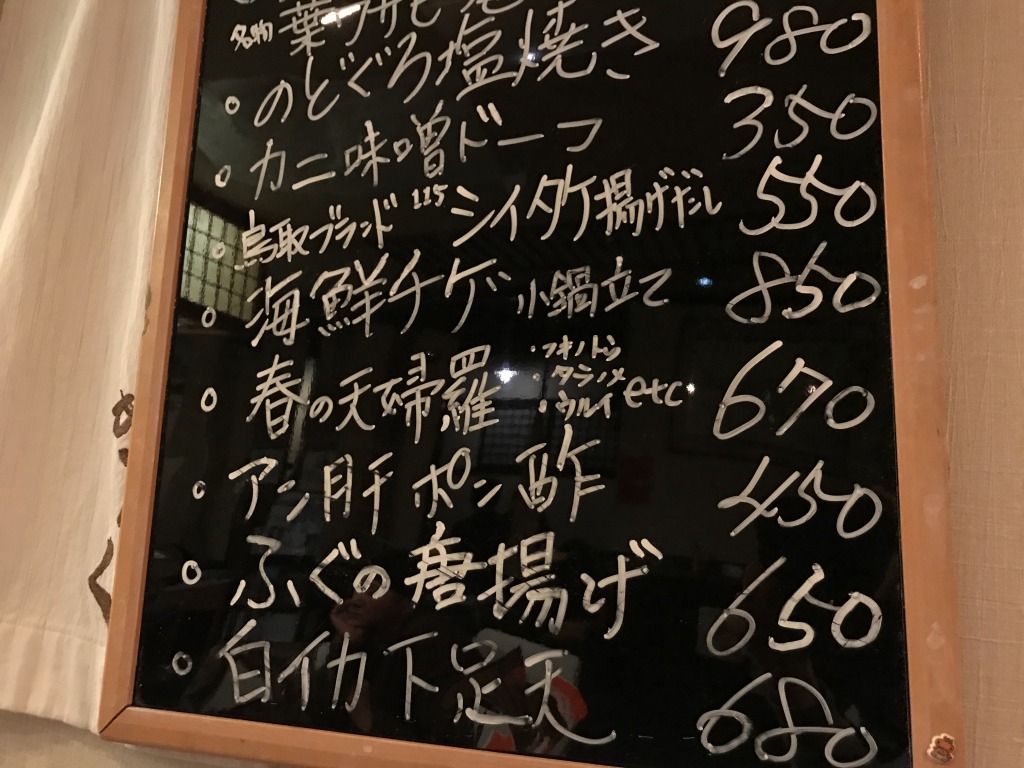 名物 葉ワサビ
○ のどぐろ塩焼き 980
○ カニ味噌ドーフ 350
○ 鳥取ブランド115 シイタケ揚げだし 550
○ 海鮮チゲ 小鍋立て 850
○ 春の天婦羅 ・フキノトウ ・タラノメ ・ウルイ etc 670
○ アン肝ポン酢 450
○ ふぐの唐揚げ 650
○ 白イカ下足天 680